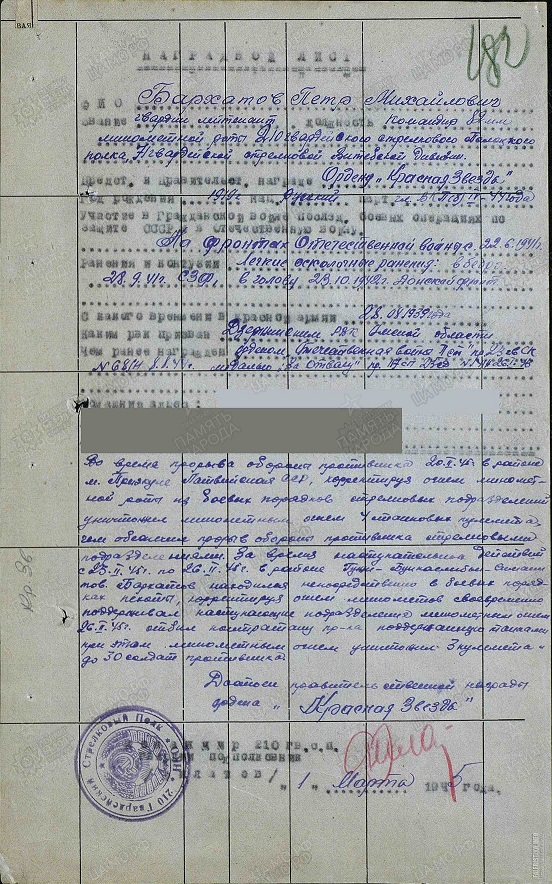 182
НАГРАДНОЙ ЛИСТ
ФИО Бархатов Петр Михайлович
Звание гвардии лейтенант должность Командир 82 мм
минометной роты 210 гвардейского стрелкового
полка, гвардейской стрелковой дивизии.
Предст. к Правительст. награде Ордену "Красная Звезда"
Год рождения 1919 г. нац. Русский парт.
Участие в Гражданской войне послед. боевых операциях по
защите СССР и Отечественную войну.
На фронтах Отечественной войны с 22.6.1941г.
Ранения и контузии легкие осколочные ранения: в бедро
28.9.41г. СЗФ, в голову 23.10.1942г. Донской фронт
С какого времени в Красной армии 08.1939 года
Каким рвк призван РВК Омской области
Чем ранее награжден орденом Отечественная война II ст.
медалью "За Отвагу"
Во время прорыва обороны противника 20.II.45г. в районе
м. Приэкуле Латвийской ССР, корректируя огнем миномет-
ной роты из боевых порядков стрелковых подразделений
уничтожил минометным огнем 4 станковых пулемета,
чем обеспечил прорыв обороны противника стрелковыми
подразделениями. За время наступательных действий
с 23.II.45г. по 26.II.45г. в районе
тов. Бархатов находился непосредственно в боевых поряд-
ках пехоты, корректируя огнем минометов своевременно
поддерживал наступающие подразделения минометным огнем
26.II.45г. отбил контратаку пр-ка поддержанную танками
при этом минометным огнем уничтожил 3 пулемета и
до 30 солдат противника.
Достоин правительственной награды
ордена "Красная Звезда"
Командир 210 гв.с.п.
гвардии подполковник
"1" Марта 1945 года.
210 Гвардейский Стрелковый Полк
ПАМЯТЬ НАРОДА